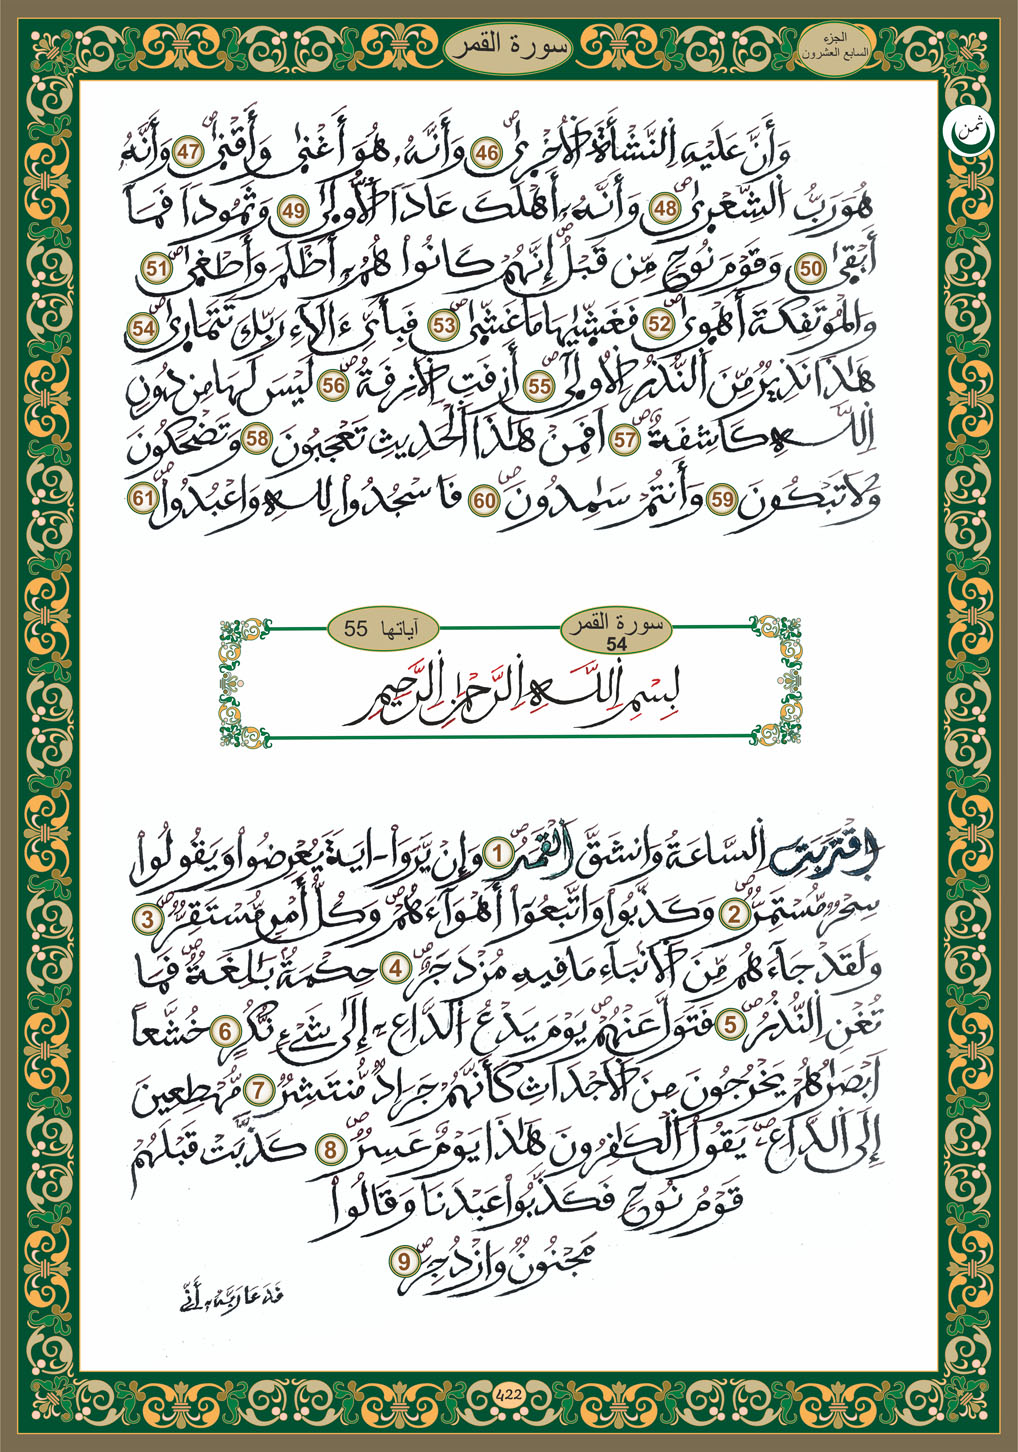 سورة القمر
الجزء
السابع العشرون
ثمن
وَأَنَّ عَلَيْهِ اِ۬لنَّشْأَةَ اَ۬لُاخْر۪يٰ 46 وَأَنَّهُۥ هُوَ أَغْن۪يٰ وَأَقْن۪يٰ 47 وَأَنَّهُۥ
هُوَ رَبُّ اُ۬لشِّعْر۪يٰ 48 وَأَنَّهُۥٓ أَهْلَكَ عَاداً اَ۬لُّاول۪يٰ 49 وَثَمُوداٗ فَمَآ
أَبْق۪يٰ 50 وَقَوْمَ نُوحٖ مِّن قَبْلُ إِنَّهُمْ كَانُواْ هُمُۥٓ أَظْلَمَ وَأَطْغ۪يٰ 51
وَالْمُوتَفِكَةَ أَهْو۪يٰ 52 فَغَشّ۪يٰهَا مَا غَشّ۪يٰ 53 فَبِأَيِّ ءَالَآءِ رَبِّكَ تَتَمَار۪يٰ 54
هَٰذَا نَذِيرٞ مِّنَ اَ۬لنُّذُرِ اِ۬لُاول۪يٰٓ 55 أَزِفَتِ اِ۬لَازِفَةُ 56 لَيْسَ لَهَا مِن دُونِ
اِ۬للَّهِ كَاشِفَةٌ 57 اَفَمِنْ هَٰذَا اَ۬لْحَدِيثِ تَعْجَبُونَ 58 وَتَضْحَكُونَ
وَلَا تَبْكُونَ 59 وَأَنتُمْ سَٰمِدُونَ 60 فَاسْجُدُواْ لِلهِ وَاعْبُدُواْ 61
سورة القمر
54
آياتها 55
بِسْمِ اِ۬للَّهِ اِ۬لرَّحْمَٰنِ اِ۬لرَّحِيمِ
اِ۪قْتَرَبَتِ اِ۬لسَّاعَةُ وَانشَقَّ اَ۬لْقَمَرُ 1 وَإِنْ يَّرَوَاْ ـايَةٗ يُعْرِضُواْ وَيَقُولُواْ
سِحْرٞ مُّسْتَمِرّٞ 2 وَكَذَّبُواْ وَاتَّبَعُوٓاْ أَهْوَآءَهُمْ وَكُلُّ أَمْرٖ مُّسْتَقِرّٞ 3
وَلَقَدْ جَآءَهُم مِّنَ اَ۬لَانۢبَآءِ مَا فِيهِ مُزْدَجَرٌ 4 حِكْمَةُۢ بَٰلِغَةٞ فَمَا
تُغْنِ اِ۬لنُّذُرُ 5 فَتَوَلَّ عَنْهُمْ يَوْمَ يَدْعُ اُ۬لدَّاعِۦٓ إِلَىٰ شَےْءٖ نُّكُرٍ 6 خُشَّعاً
اَبْصَٰرُهُمْ يَخْرُجُونَ مِنَ اَ۬لَاجْدَاثِ كَأَنَّهُمْ جَرَادٞ مُّنتَشِرٞ 7 مُّهْطِعِينَ
إِلَى اَ۬لدَّاعِۦ يَقُولُ اُ۬لْكَٰفِرُونَ هَٰذَا يَوْمٌ عَسِرٞ 8 كَذَّبَتْ قَبْلَهُمْ
قَوْمُ نُوحٖ فَكَذَّبُواْ عَبْدَنَا وَقَالُواْ
مَجْنُونٞ وَازْدُجِرَ 9
فَدَعَا رَبَّهُۥٓ أَنِّے
422